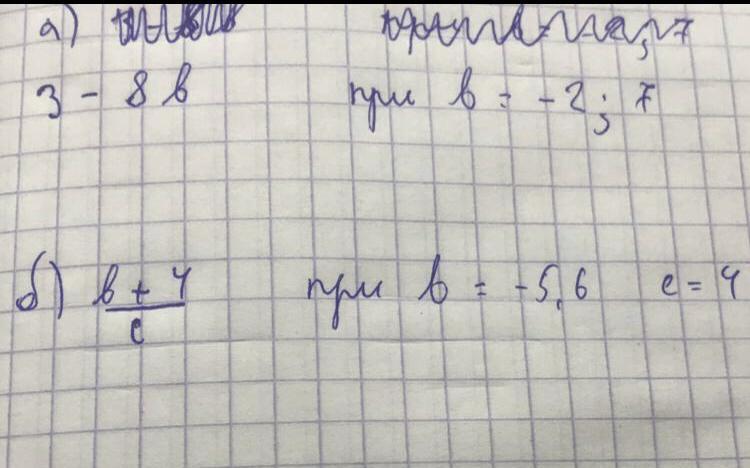 а)
3 - 8в при в = -2; 7
б) в + 4 при в = -5,6 с = 4
с